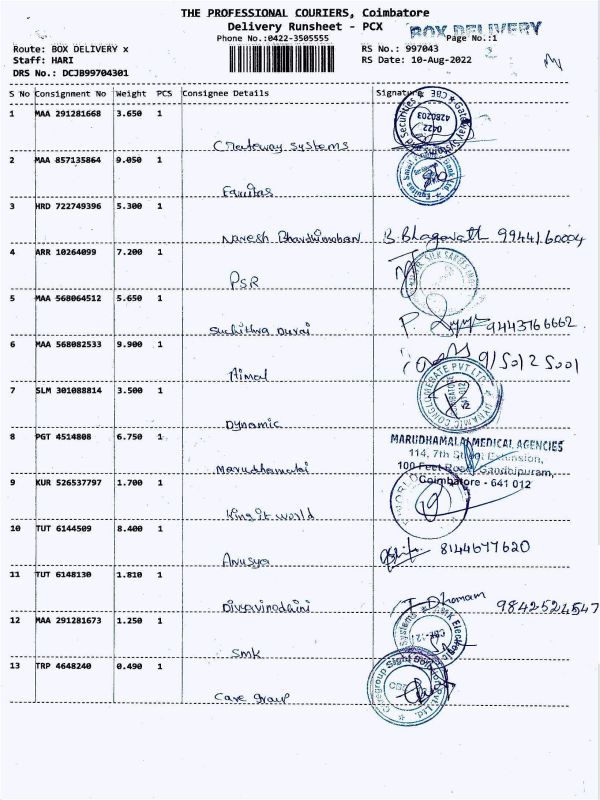 THE PROFESSIONAL COURIERS, Coimbatore
Delivery Runsheet - PCX
BOX DELIVERY
Phone No.:0422-3505555
Page No.:1
Route: BOX DELIVERY x
RS No.: 997043
Staff: HARI
RS Date: 10-Aug-2022
DRS No.: DCJB99704301
S No Consignment No Weight PCS Consignee Details Signature
1 MAA 291281668 3.650 1
Gateway Systems
0422 4280203
2 MAA 857135864 9.050 1
Equitas
3 HRD 722749396 5.300 1
Naresh Bhavdhimohan B Bhagavath 9944160004
4 ARR 10264099 7.200 1
PSR
5 MAA 568064512 5.650 1
Suchithra Durai 9443766662
6 MAA 568082533 9.900 1
Aimal 9150125001
7 SLM 301088814 3.500 1
Dynamic
DYNAMIC CONGLOMERATE PVT LTD
8 PGT 4514808 6.750 1
Marudhamalai
MARUDHAMALAI MEDICAL AGENCIES
114, 7th Street Extension,
100 Feet Road, Gandhipuram,
Coimbatore - 641 012
9 KUR 526537797 1.700 1
King it world
10 TUT 6144509 8.400 1
Anusya 8144677620
11 TUT 6148130 1.810 1
Divyavinodhini T Dhamam 9842524547
12 MAA 291281673 1.250 1
SMK
13 TRP 4648240 0.490 1
Care group